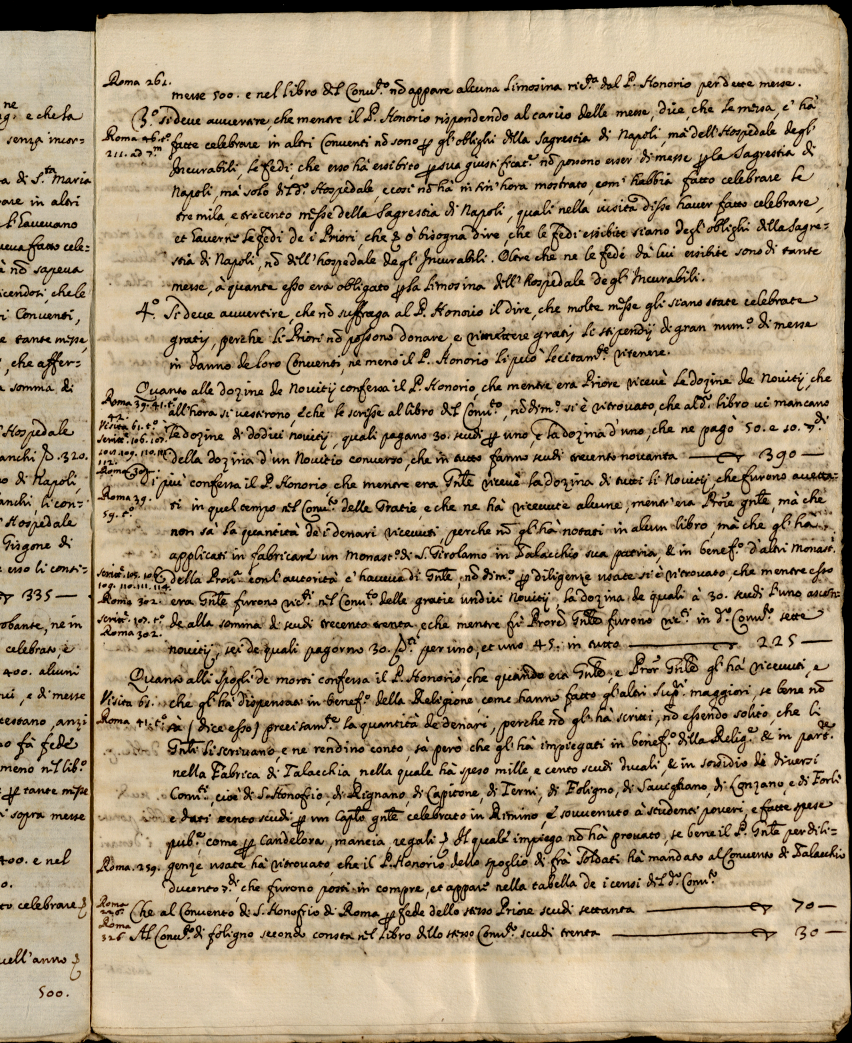 ne
e che ha
senza incor=
a di S.ta Maria
in altri
haveuano
fatto cele=
nõ sapeua
che le
Conuenti,
e tante messe,
, che affer=
a somma di
Hospedale
320.
di Napoli,
li con=
Hospedale
Gisgone di
esso li consti=
335 —
ne in
celebrato, è
400. alcuni
, e di messe
anzi
fà fede
meno nel lib.o
tante messe
sopra messe
400. e nel
celebrare
quell'anno
500.
Roma 261.
messe 500. e nel libro del Conu.to nõ appare alcuna limosina ric.ta dal P. Honorio per dette messe.
3.o si deue auuertire, che mentre il P. Honorio rispondendo al carico delle messe, dice, che le messe e' hà
Roma 46. t.o
211. ad 7.m
fatte celebrare in altri Conuenti nõ sono p gl'oblighi della Sagrestia di Napoli, mà dell'Hospedale degl'
Incurabili, le fedi, che esso hà essibito p sua giustificat.e nõ possono esser di messe p la Sagrestia di
Napoli, mà solo di d.o Hospedale, e così nõ hà in sin'hora mostrato, com'habbia fatto celebrare le
tre mila e trecento messe della Sagrestia di Napoli, quali nella visita disse hauer fatto celebrare,
et hauerne le fedi de i Priori, che ò bisogna dire, che le fedi essibite siano degl'oblighi della Sagre=
stia di Napoli, nõ dell'hospedale degl'Incurabili. Oltre che ne le fede dà lui essibite sono di tante
messe, à quante esso era obligato p la limosina dell'Hospedale degl'Incurabili.
4.o Si deue auuertire, che nõ suffraga al P. Honorio il dire, che molte messe gli siano state celebrate
gratis, perche li Priori nõ possono donare, e rimettere gratis li stipendij di gran num.o di messe
in danno de loro Conuenti, ne meno il P. Honorio li può lecitam.te ritenere.
Quanto alle dozine de Nouitij confessa il P. Honorio, che mentre era Priore riceuè le dozine de Nouitij, che
Roma 39. 41. t.o
42.
all'hora si uestirono, & che le scrisse al libro del Conu.to, nõ dim.o si è ritrouato, che al d.o libro ui mancano
Visita 61. t.o
Scritt.e 106. 107.
le dozine di dodici nouitij, quali pagano 30. scudi p uno, e la dozina d'uno, che ne pagò 50. e 10.
108. 109. 110. 111.
112.
della dozina d'un Nouitio conuerso, che in tutto fanno scudi trecento nouanta — 390 —
Roma 301.
Di più confessa il P. Honorio che mentre era Gnle riceuè la dozina di tutti li Nouitij, che furono accetta=
Roma 39.
59. t.o
ti in quel tempo nel Conu.to delle Gratie, e che ne hà riceuute alcune, mentr'era Prore gnle, mà che
non sà la quantità de i denari riceuuti, perche nõ gl'hà notati in alcun libro, mà che gl'hà
applicati in fabricare un Monast.o di S. Girolamo in Talacchio sua patria, & in benef.o d'altri Monast.
della Prou.a con l'autorità c'haueua di Gnle, nõ dim.o p diligenze usate si è ritrouato, che mentre esso
109. 110. 111. 114.
Roma 302.
era Gnle furono ric.ti nel Conu.to delle gratie undici Nouitij, la dozina de quali à 30. scudi l'uno ascen=
Scritt.e 107. t.o
Roma 302.
de alla somma di scudi trecento trenta, e che mentre fù Prore Gnle furono ric.ti in d.o Conu.to sette
nouitij, sei de quali pagorno 30. per uno, et uno 45. in tutto — 225 —
Quanto alli spogli de morti confessa il P. Honorio, che quando era Gnle, e Pror Gnle gl'hà riceuuti, e
Visita 61.
che gl'hà dispensati in benef.o della Religione come hanno fatto gl'altri Sup.ri maggiori, se bene nõ
Roma 41. t.o
sà (dice esso) precisam.te la quantità de denari, perche nõ gl'hà scritti, nõ essendo solito, che li
Gnli li scriuano, e ne rendino conto, sà però che gl'hà impiegati in benef.o della Relig.e & in part.re
nella Fabrica di Talacchia nella quale hà speso mille, e cento scudi ducali, & in sossidio de diuersi
Conu.ti, cioè di S. Honofrio, di Rignano, di Capitone, di Terni, di Foligno, di Sauignano, di Conzano, e di Forlì
e dati cento scudi p un Caplo gnle celebrato in Rimino, & souuenuto à studenti poueri, e fatte spese
pub.e come p Candelora, mancia, regali & Il quale impiego nõ hà prouato, se bene il P. Gnle per dili=
Roma 259.
genze usate hà ritrouato, che il P. Honorio dello spoglio di frà Soldati hà mandato al Conuento di Talacchio
ducento, che furono posti in compre, et appare nella tabella de i censi del d.o Conu.to
Roma
Che al Conuento di S. Honofrio di Roma p fede dello stesso Priore scudi settanta — 70 —
Roma
326.
Al Conu.to di foligno secondo consta nel Libro dello stesso Conu.to scudi trenta — 30 —